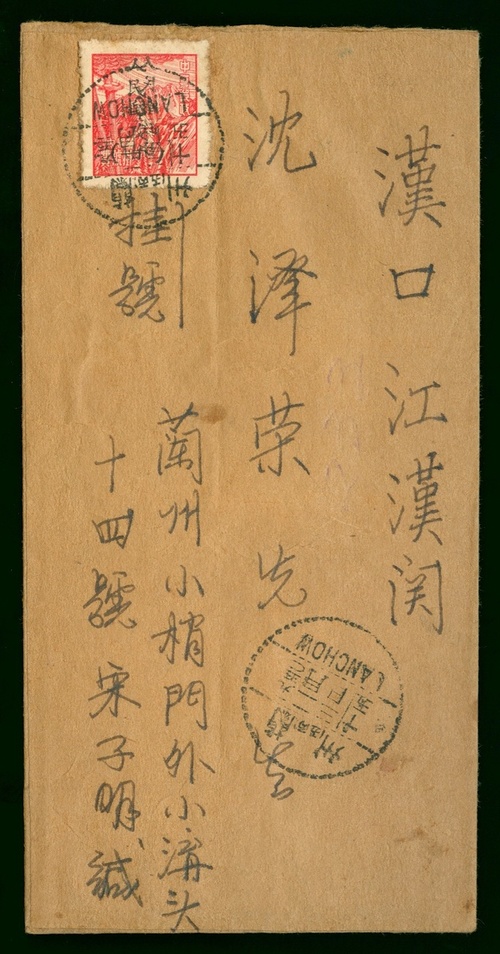 漢口江漢関
沈泽荣先
掛號
蘭州小梢門外小溝头
十四號宋子明緘
LANCHOW
LANCHOW